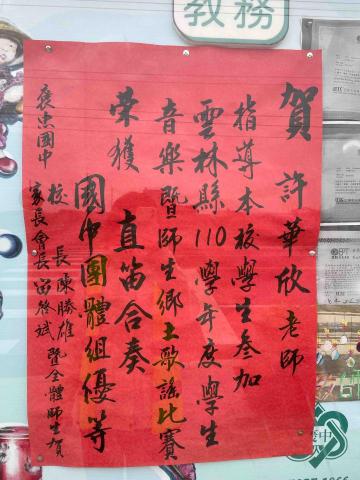 教務
賀 許華欣老師
指導本校學生參加
雲林縣110學年度學生
音樂暨師生鄉土歌謠比賽
榮獲 直笛合奏
國中團體組優等
褒忠國中
校長陳勝雄
家長會長
暨全體師生賀